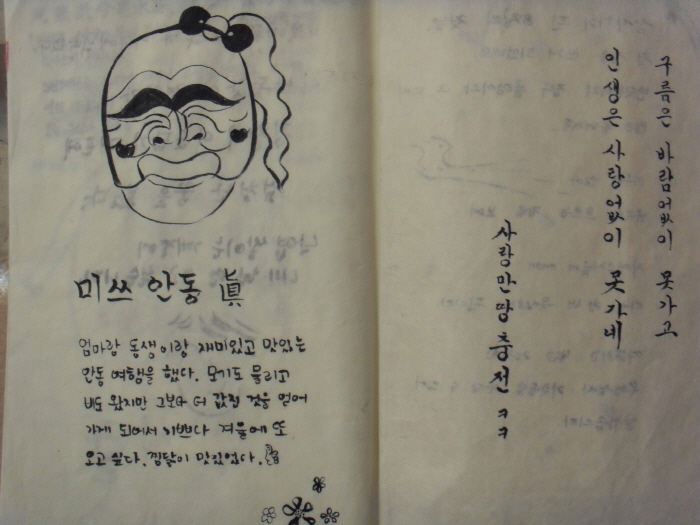 미쓰 안동 眞
엄마랑 동생이랑 재미있고 맛있는
안동 여행을 했다. 모기도 물리고
비도 왔지만 그보다 더 값진 것을 얻어
가게 되어서 기쁘다 겨울에 또
오고 싶다. 찜닭이 맛있었다.
구름은 바람없이 못가고
인생은 사랑없이 못가네
사랑만땅충전ㅋㅋ